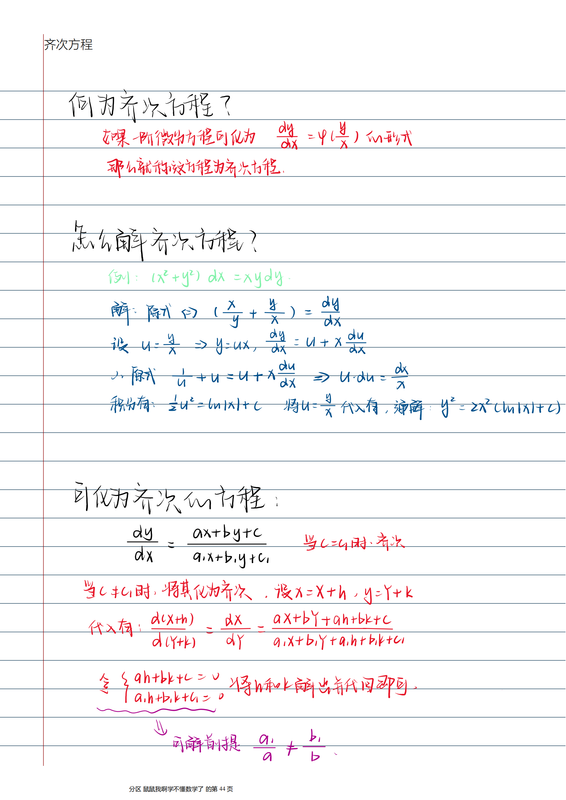 齐次方程
何为齐次方程？
如果一阶微分方程可化为 dy/dx = φ(y/x) 的形式
那么就称该方程为齐次方程.
怎么解齐次方程？
例: (x²+y²) dx = xydy.
解: 原式 ⇔ (x/y + y/x) = dy/dx
设 u=y/x ⇒ y=ux, dy/dx = u + x du/dx
∴ 原式 1/u + u = u + x du/dx ⇒ u·du = dx/x
积分有: ½u² = ln|x| + C 将u=y/x 代入有, 通解: y² = 2x²(ln|x|+C)
可化为齐次的方程:
dy/dx = ax+by+c / a₁x+b₁y+c₁ 当c=c₁时.齐次
当c≠c₁时, 将其化为齐次. 设x=X+h, y=Y+k
代入有: d(X+h)/d(Y+k) = dX/dY = aX+bY+ah+bk+c / a₁X+b₁Y+a₁h+b₁k+c₁
令 { ah+bk+c = 0
a₁h+b₁k+c₁ = 0 将h和k解出并代回即可.
⇓ 可解前提 a₁/a ≠ b₁/b .
分区 鼠鼠我啊学不懂数学了 的第 44 页